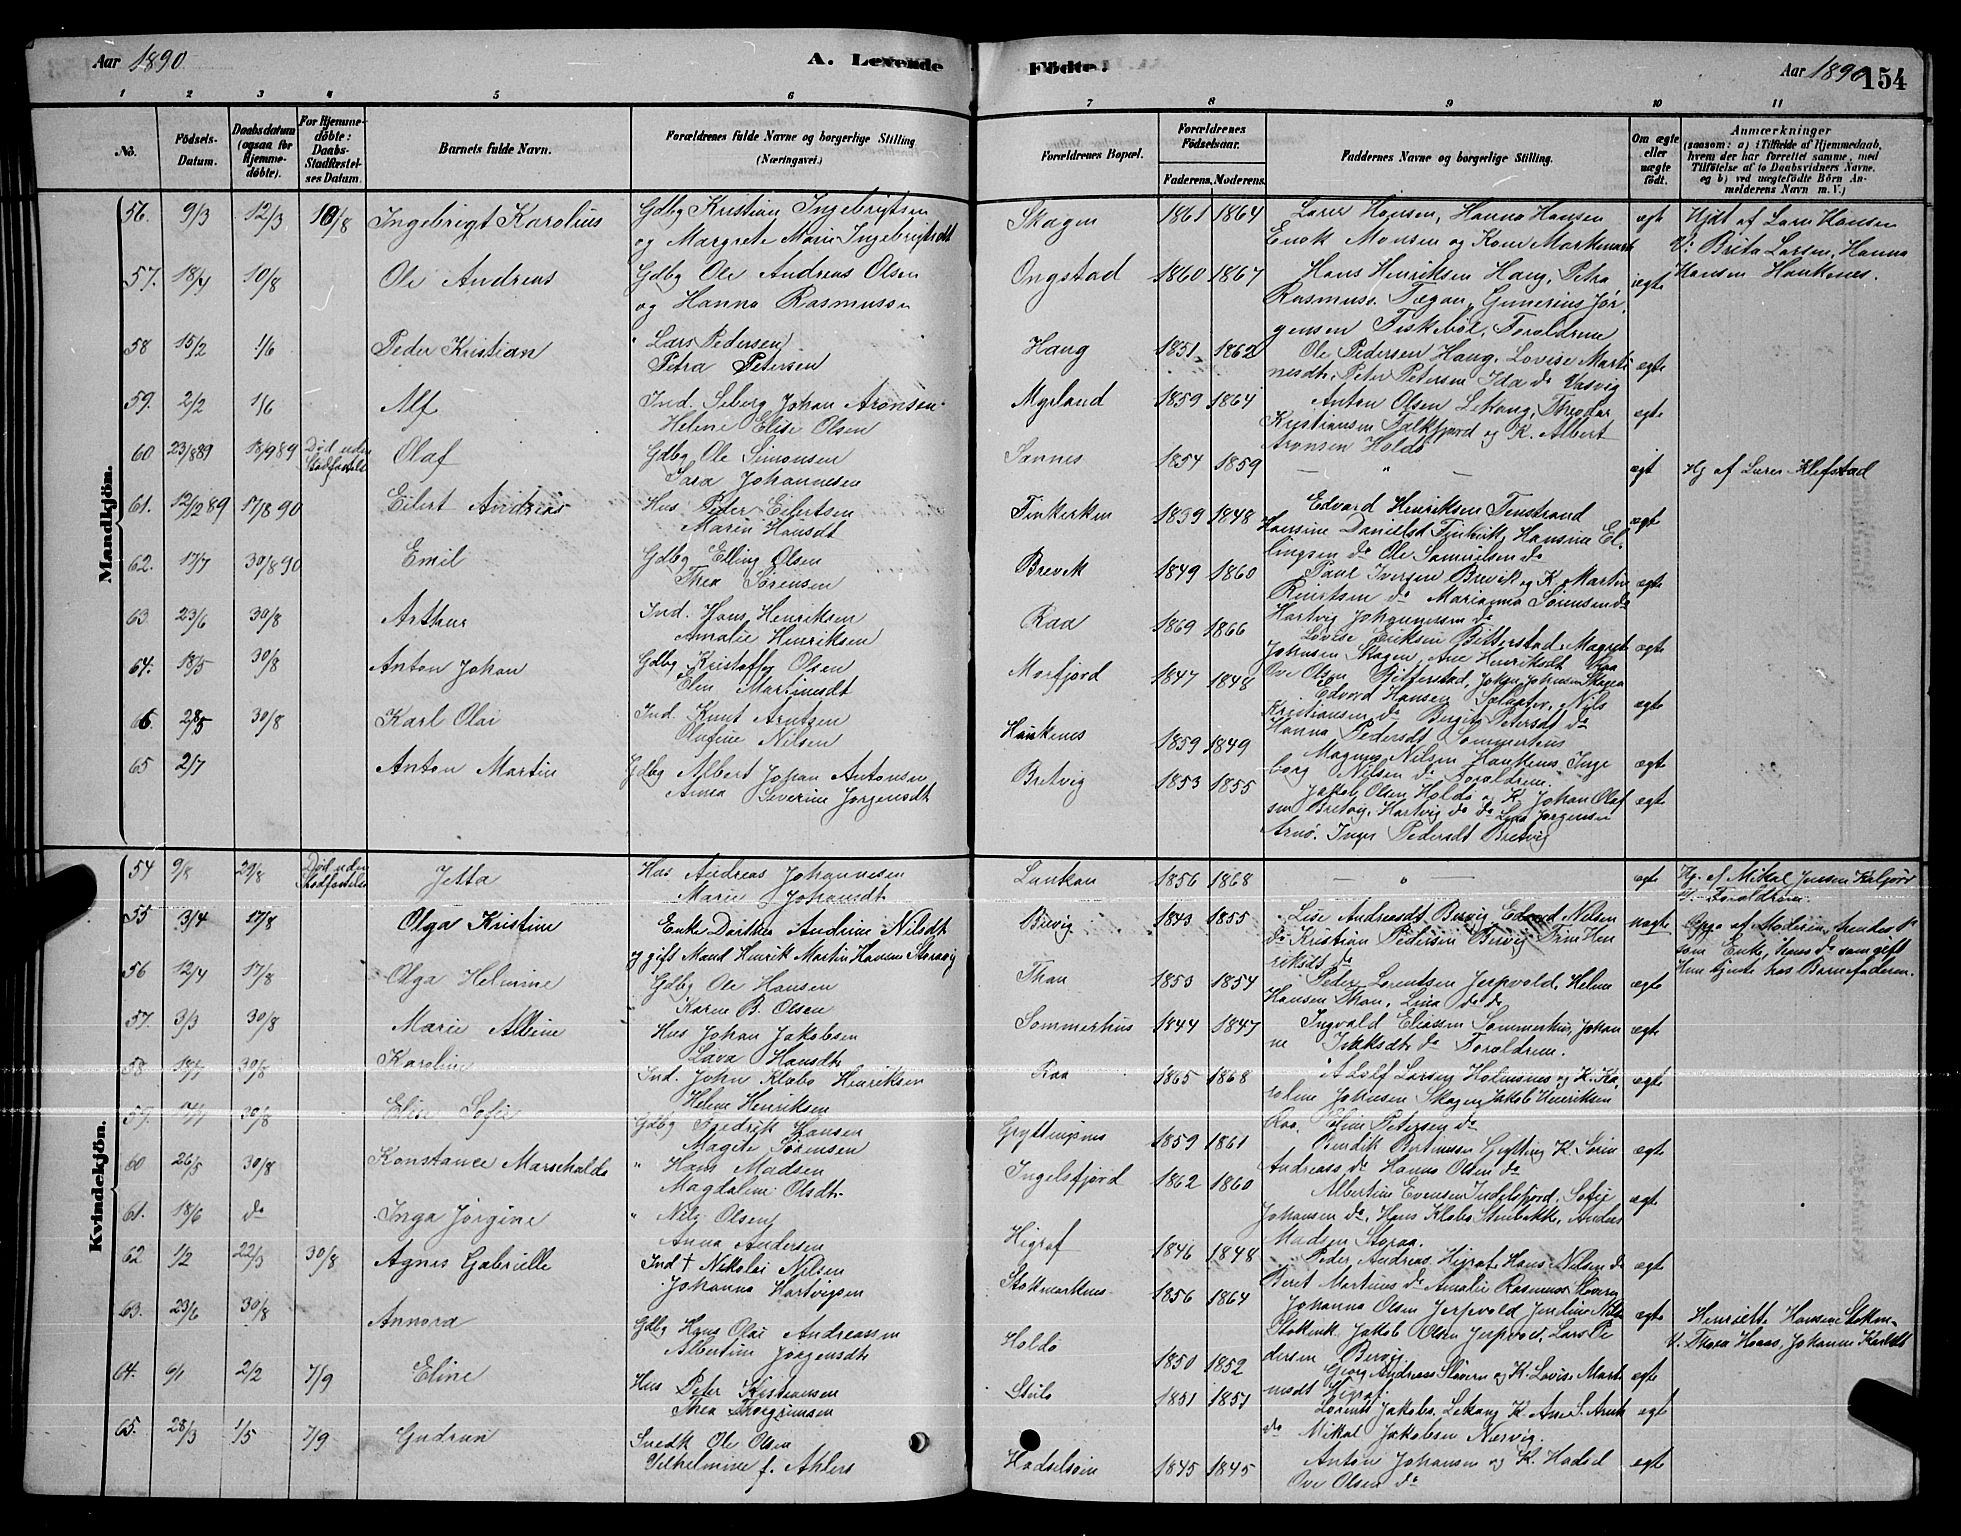 Aar 1890
A. Levende
Fødte.
Aar 1890
154
1 2 3 4 5 6
7 8 9 10 11
No.
Fødsels-Datum.
Daabsdatum (ogsaa for Hjemme-døbte).
For Hjemme-døbte: Daabs-Stadfæstel-ses Datum.
Barnets fulde Navn.
Forældrenes fulde Navne og borgerlige Stilling (Næringsvei.)
Forældrenes Bopæl.
Forældrenes Fødselsaar.
Faderens. Moderens.
Faddernes Navne og borgerlige Stilling.
Om ægte eller uægte født.
Anmærkninger
(saasom: a) i Tilfælde af Hjemmedaab, hvem der har forrettet samme, med Tilføielse af to Daabsvidners Navne, og b) ved uægtefødte Børn An-melderens Navn m. V.)
Mandkjøn.
56. 9/3 12/3 10/8 Ingebrigt Karolius Gdbg Kristian Ingebrigtsen
og Margrete Marie Ingebrigtsdt
Skagen 1861 1864 Larer Hansen, Hanna Hansen
Enok Monsen og Kone Markmark
ægt Hjdt af Larer Hansen
V: Brita Larsen, Hanna
Hansen Haukenes.
57. 18/4 10/8 Ole Andreas Gdbg Ole Andreas Olsen
og Hanna Rasmussn
Ongstad 1860 1867 Hans Henriksen Haug, Petra
Rasmuss. Tægan, Gunerius Jør
gensen Fiskebøl, Forældrene
ægte
58 15/2 1/6 Peder Kristian " Lars Pedersen
Petra Petersen
Haug 1851 1862 Ole Pedersen Haug, Lovise Marti
nesdt, Peter Petersen Ida do Vasvig
ægte
59. 2/2 1/6 Alf Ind. Seberg Johan Aronsen
Helene Elise Olsen
Myrland 1859 1864 Anton Olsen Lekang, Theodor
Kristiansen Falkfjord og K. Albert
Aronsen Holdø
ægte
60 23/8 89 18/9 89 Død uden Stadfæstelse Olaf Gdbg Ole Simonsen
Sara Johannesen
Sannes 1854 1859 — " — ægt Hj af Larer Klefstad
61. 12/12 89 17/8 90 Eilert Andreas Hus Peter Eilertsen
Maren Hansdt
Finkerken 1839 1848 Edvard Henriksen Finstrand
Hansine Danielsd Finkerk, Hansine El
lingsen do Ole Samuelsen do
ægte
62. 17/7 30/8 90 Emil Gdbg Elling Olsen
Thea Sørensen
Brevik 1849 1860 Paul Iversen Brevik og K. Martin
Rinertsen do Marianna Sørensen do
Hartvig Johannessen do
ægte
63 23/6 30/8 Arthur Ind. Hans Henriksen
Amalie Henriksen
Raa 1869 1866 Lovise Eriksen Bitterstad, Magret
Johnsen Skagen, Ane Henriksdt Raa
Ove Olsen Bitterstad, Johan Johnsen Skagen
ægte
64. 18/5 30/8 Anton Johan Gdbg Kristoffer Olsen
Elen Martinusdt
Morfjord 1847 1848 Edvard Hansen Sælatter, Nils
Kristiansen do Bergite Petersdt do
Hanna Pedersdt Sommerhus
ægte
66 28/5 30/8 Karl Olai Ind. Knut Arntzen
Olafine Nilsen
Haukenes 1859 1849 Magnus Nilsen Haukenes, Inge
borg Nilsen do Forældrene.
ægte
65 2/7 Anton Martin Gdbg Albert Johan Antonsen
Anna Severine Jørgensdt
Bretvig 1853 1855 Jakob Olsen Holdø og K. Johan Olaf
sen Bretvig, Hartvig do do Lars Jørgensen
Arnø. Inger Pedersdt Bretvig
ægte
Kvindekjøn.
54 9/8 29/8 Død uden Stadfæstelse Jetta Hus Andreas Johannesen
Marie Johansdt
Lankan 1856 1868 — " — ægte Hj. af Mikal Jensen Kaljord
V. Forældrene.
55 3/4 17/8 Olga Kristine Enke Dorthea Andrine Nilsdt
og gift Mand Henrik Martin Hansen Storavig
Bervig 1843 1855 Lise Andreasdt Bervig Edvard Nilsen
do Kristian Pedersen Bervig Trine Hen
riksdt do
uægte Opg. af Moderen, hendes St
som Enke, hans do som gift
Hun tjente hos Barnefaderen.
56 12/4 17/8 Olga Helmine Gdbg Ole Hansen
Karen B. Olsen
Than 1853 1854 Peder Lorentsen Jerpvold, Helene
Hansen Than, Lina do do
ægte
57. 3/3 30/8 Marie Albine Hus Johan Jakobsen
Lava Hansdt
Sommerhus 1844 1847 Ingvald Eliassen Sommerhus, Johan
ne Isaksdt do Forældrene.
ægte
58 18/7 30/8 Karoline Ind. John Klabo Henriksen
Helene Henriksen
Raa 1865 1868 Adolf Larsen Holmsnes og K. Ka
roline Johnsen Skagen Jakob Henriksen
Raa. Eline Petersen do
ægte
59. 14/7 30/8 Elen Sofie Gdbg Fredrik Hansen
Magrete Sørensen
Gryttingsnes 1859 1861 Bendik Bertinusen Grytting K. Sørin
Andreass do Hanna Olsen do
ægte
60 26/5 30/8 Konstance Marschalde " Hans Madsen
Magdalene Olsdt.
Ingelsfjord 1862 1860 Albertine Evensen Indelsfjord, Sofie
Johansen do, Hans Klabo Strubakke, Anders
Madsen Storaa.
ægte
61. 18/6 do Inga Jørgine " Nils Olsen
Anna Andersen
Higraf 1846 1848 Peder Andreas. Higraf, Hans Nilsen do
Beret Martines do Amalie Rasmuss Sloveren
ægte
62 1/2 22/3 30/8 Agnes Gabrielle Ind † Nikolai Nilsen
Johanna Hartvigsen
Stokmarknes 1856 1864 Johanna Olsen Jerpvold Jentine Nils
Stokmk. Jakob Olsen Jerpvold, Lars Pe
dersen Bervig
ægte Henriette Hansen Stokm
V. Thora Haas, Johanna
63. 23/6 30/8 Annora Gdbg Hans Olai Andreassen
Albertine Jørgensdt
Holdø 1850 1852 Georg Andreass Sloveren og K. Lovise Mart
insdt Higraf
ægte
64. 6/1 2/2 7/9 Eline Hus Peter Kristiansen
Thea Thorgrimsen
Stulo 1851 1851 Lorents Jakobs. Lekang K. Ane S. Arnts
do Mikal Jakobsen Nærvig.
ægt
65. 28/3 1/5 7/9 Gudrun Snedk Ole Olsen
Vilhelmine f. Ahlers
Hadseløen 1845 1845 Anton Johansen og K. Hadsel
Ove Olsen do
ægte